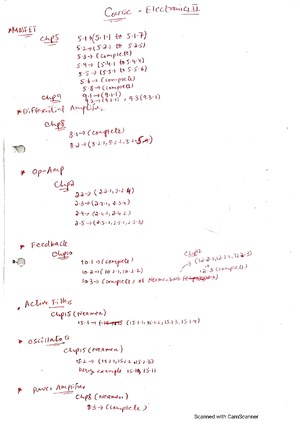 Course - Electronics II
* MOSFET
Chp5
5.1 (5.1.1 to 5.1.7)
5.2 → (5.2.1 to 5.2.5)
5.3 → (complete)
5.4 → (5.4.1 to 5.4.4)
5.5 → (5.5.1 to 5.5.6)
5.6 → (complete)
5.8 → (complete)
Chp9
9.1 → (9.1.1)
* Differential Amplifier
Chp8
8.1 → (complete)
8.2 → (8.2.1, 8.2.2,
* Op-Amp
Chp2
2.2 → (2.2.1, 2.2.4)
2.3 → (2.3.1, 2.3.2)
2.4 → (2.4.1, 2.4.2)
2.5 → (2.5.1, 2.5.2, 2.5.3)
* Feedback
Chp10
10.1 → (complete)
10.2 → (10.2.1, 10.2.2)
10.3 → (complete) of Neamen book
Chp12
(12.2.1, 12.2.2, 12.2.3)
12.3 (complete)
* Active Filters
Chp15 (Neamen)
15.1 → (15.1.1, 15.1.2, 15.1.3, 15.1.4)
* Oscillators
Chp15 (Neamen)
15.2 → (15.2.1, 15.2.2, 15.2.3)
example 15.10, 15.11
* Power Amplifier
Chp8 (Neamen)
8.3 → (complete)
Scanned with CamScanner